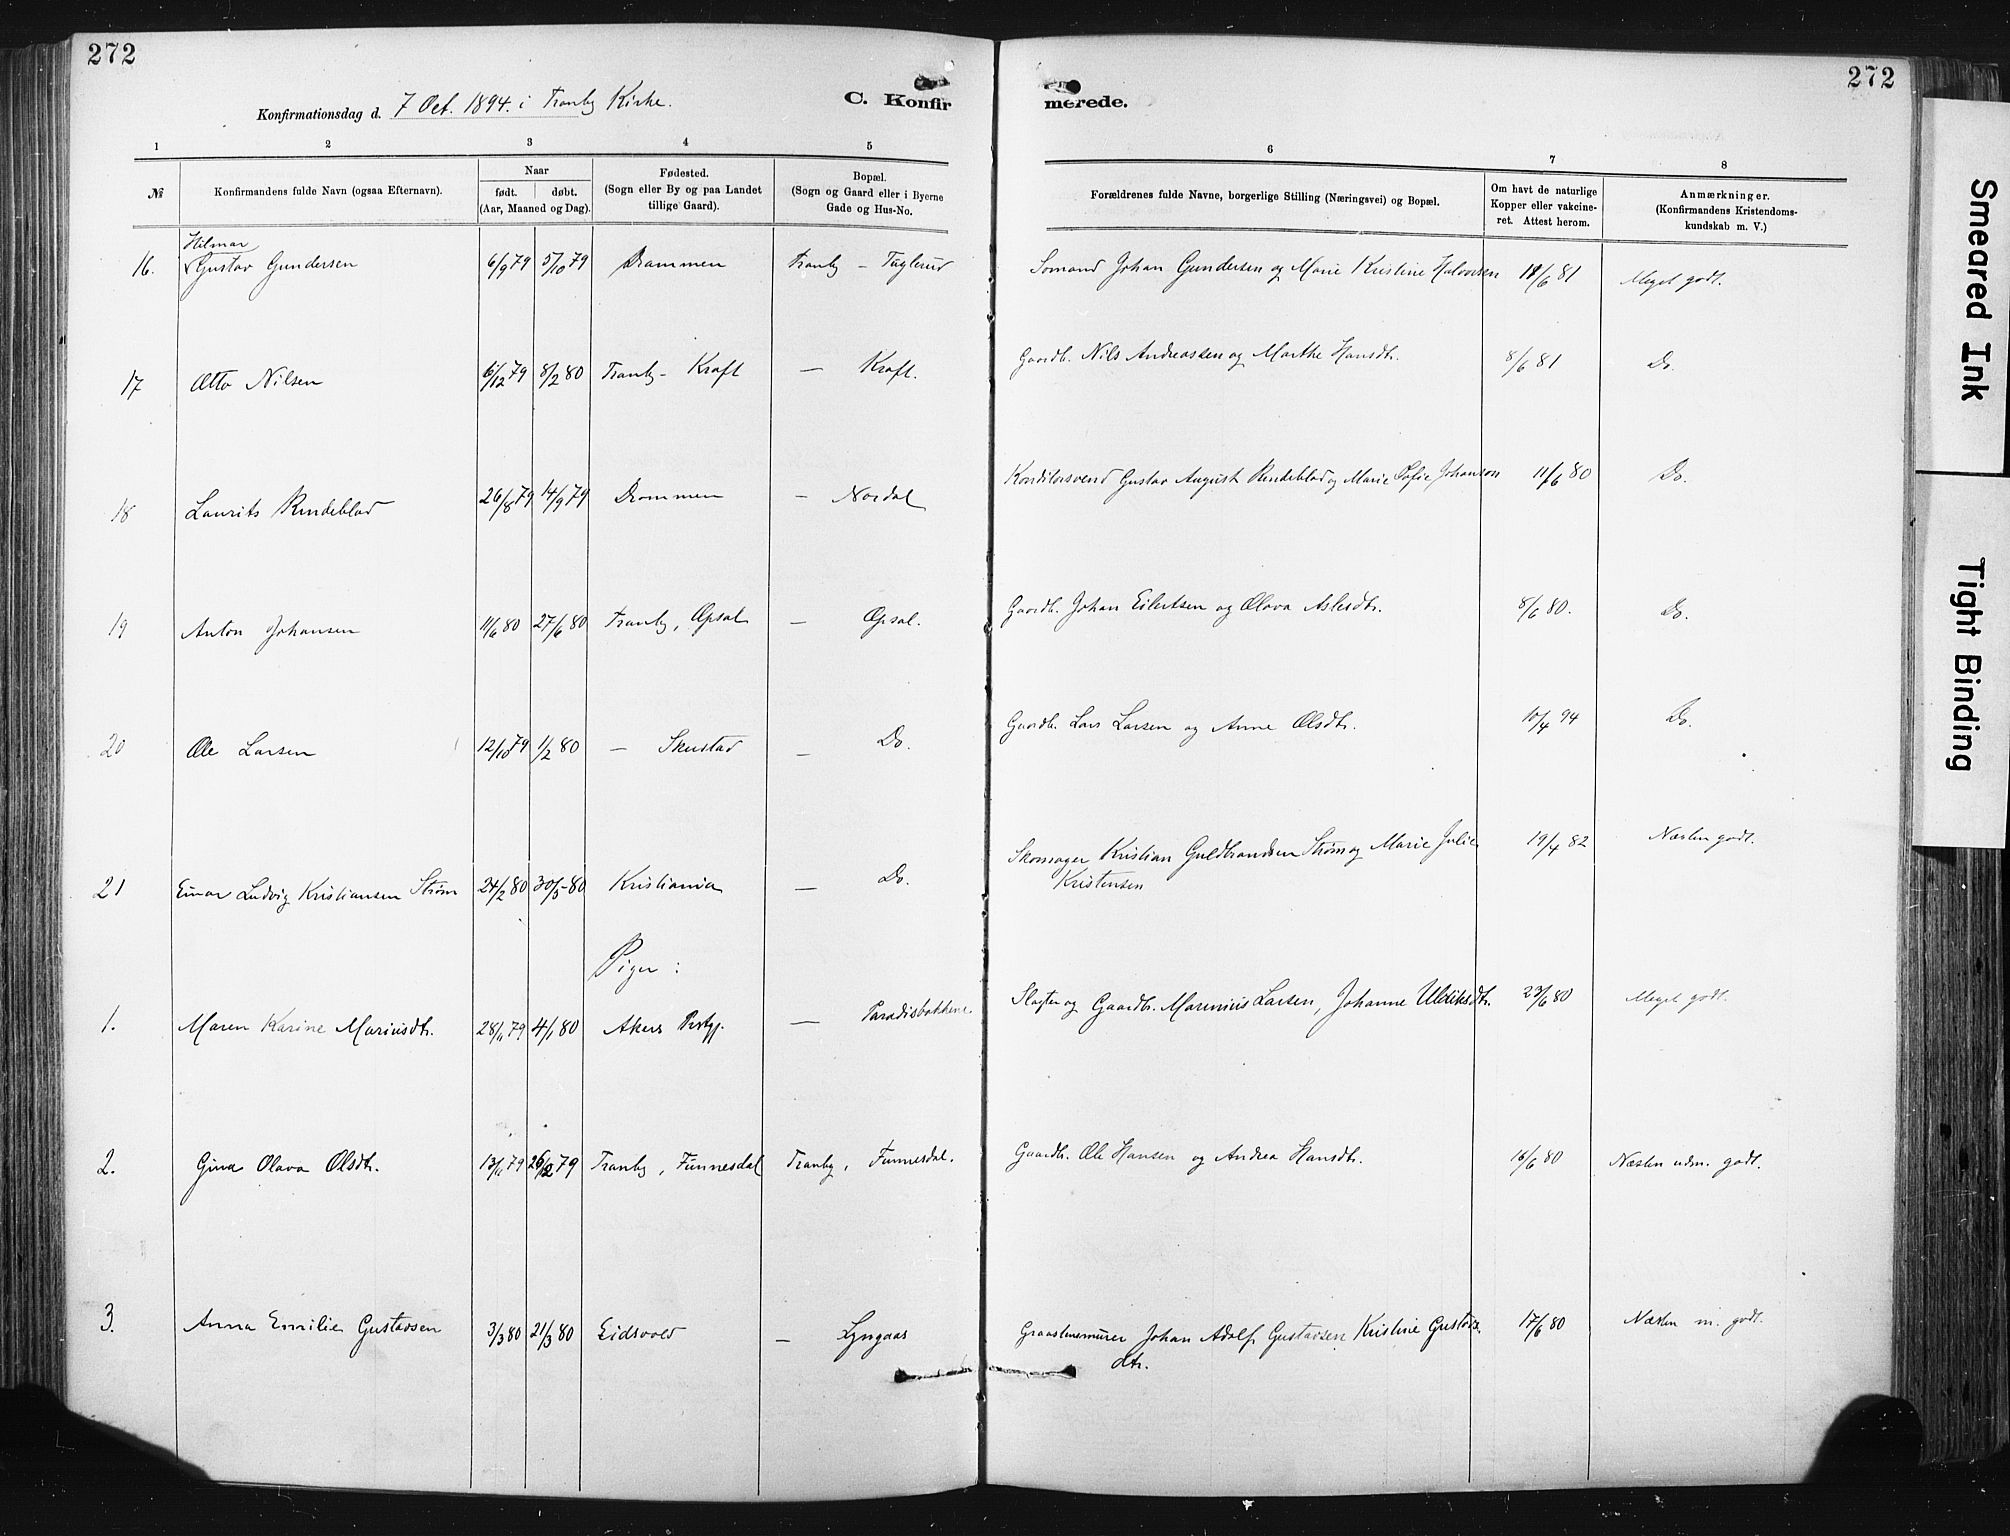 272
272
Konfirmationsdag d. 7 Oct. 1894. i Tranby Kirke.
C. Konfirmerede.
1 2 3 4 5 6 7 8
№
Konfirmandens fulde Navn (ogsaa Efternavn).
Naar
født. døbt.
(Aar, Maaned og Dag).
Fødested.
(Sogn eller By og paa Landet
tillige Gaard).
Bopæl.
(Sogn og Gaard eller i Byerne
Gade og Hus-No.
Forældrenes fulde Navne, borgerlige Stilling (Næringsvei) og Bopæl.
Om havt de naturlige
Kopper eller vakcine-
ret. Attest herom.
Anmærkninger.
(Konfirmandens Kristendoms-
kundskab m. V.)
Hilmar
16. Gustav Gundersen 6/9 79 5/10 79 Drammen Tranby - Tuglerud Sømand Johan Gundersen og Marie Kristine Halvorsen 11/6 81 Meget godt.
17 Otto Nilsen 6/12 79 8/2 80 Tranby - Kraft — Kraft. Gaardb. Nils Andreassen og Marthe Hansdtr. 8/6 81 Do.
18 Laurits Rundeblad 26/8 79 14/9 79 Drammen — Nordal Konditorsvend Gustav August Rundeblad og Marie Sofie Johanson 11/6 80 Do.
19 Anton Johansen 11/6 80 27/6 80 Tranby, Opsal — Opsal. Gaardb. Johan Eilertsen og Olava Aslesdtr. 8/6 80. Do.
20 Ole Larsen 12/10 79 1/2 80 — Skustad — Do. Gaardb. Lars Larsen og Anne Olsdtr. 10/4 94 Do.
21 Einar Ludvig Kristiansen Strøm 24/2 80 30/5 80 Kristiania — Do. Skomager Kristian Guldbrandsen Strøm og Marie Julie 19/4 82 Næsten godt.
Kristensen
Piger:
1. Maren Karine Mariusdtr. 28/11 79 4/1 80 Akers Prstgj. — Paradisbakkene Slagter og Gaardb. Marinius Larsen, Johanne Ulriksdtr. 23/6 80 Meget godt.
2. Gina Olava Olsdtr. 13/11 79 26/12 79 Tranby, Finnesdal Tranby, Finnesdal. Gaardb. Ole Hansen og Andrea Hansdtr. 16/6 80 Næsten udm. godt.
3. Anna Emilie Gustavsen 3/3 80 21/3 80 Eidsvold — Lyngaas Graastensmurer Johan Adolf Gustavsen Kristine Gustavs- 17/6 80 Næsten m. godt.
dtr.
Smeared Ink
Tight Binding